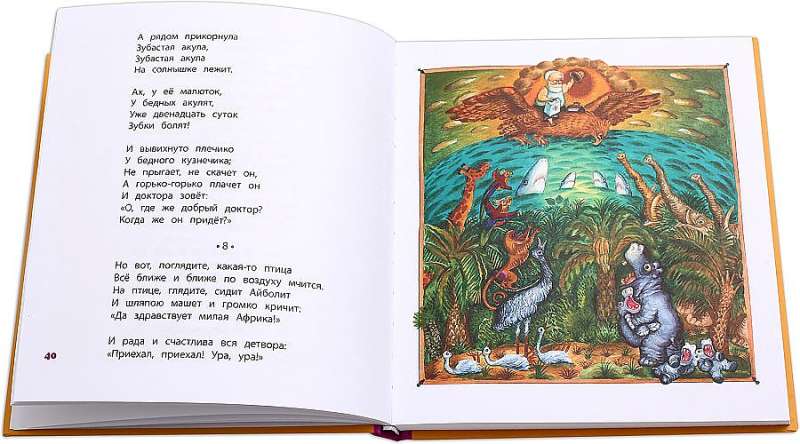 А рядом прикорнула
Зубастая акула,
Зубастая акула
На солнышке лежит.
Ах, у её малюток,
У бедных акулят,
Уже двенадцать суток
Зубки болят!
И вывихнуто плечико
У бедного кузнечика;
Не прыгает, не скачет он,
А горько-горько плачет он
И доктора зовёт:
«О, где же добрый доктор?
Когда же он придёт?»
• 8 •
Но вот, поглядите, какая-то птица
Всё ближе и ближе по воздуху мчится.
На птице, глядите, сидит Айболит
И шляпою машет и громко кричит:
«Да здравствует милая Африка!»
И рада и счастлива вся детвора:
«Приехал, приехал! Ура, ура!»
40